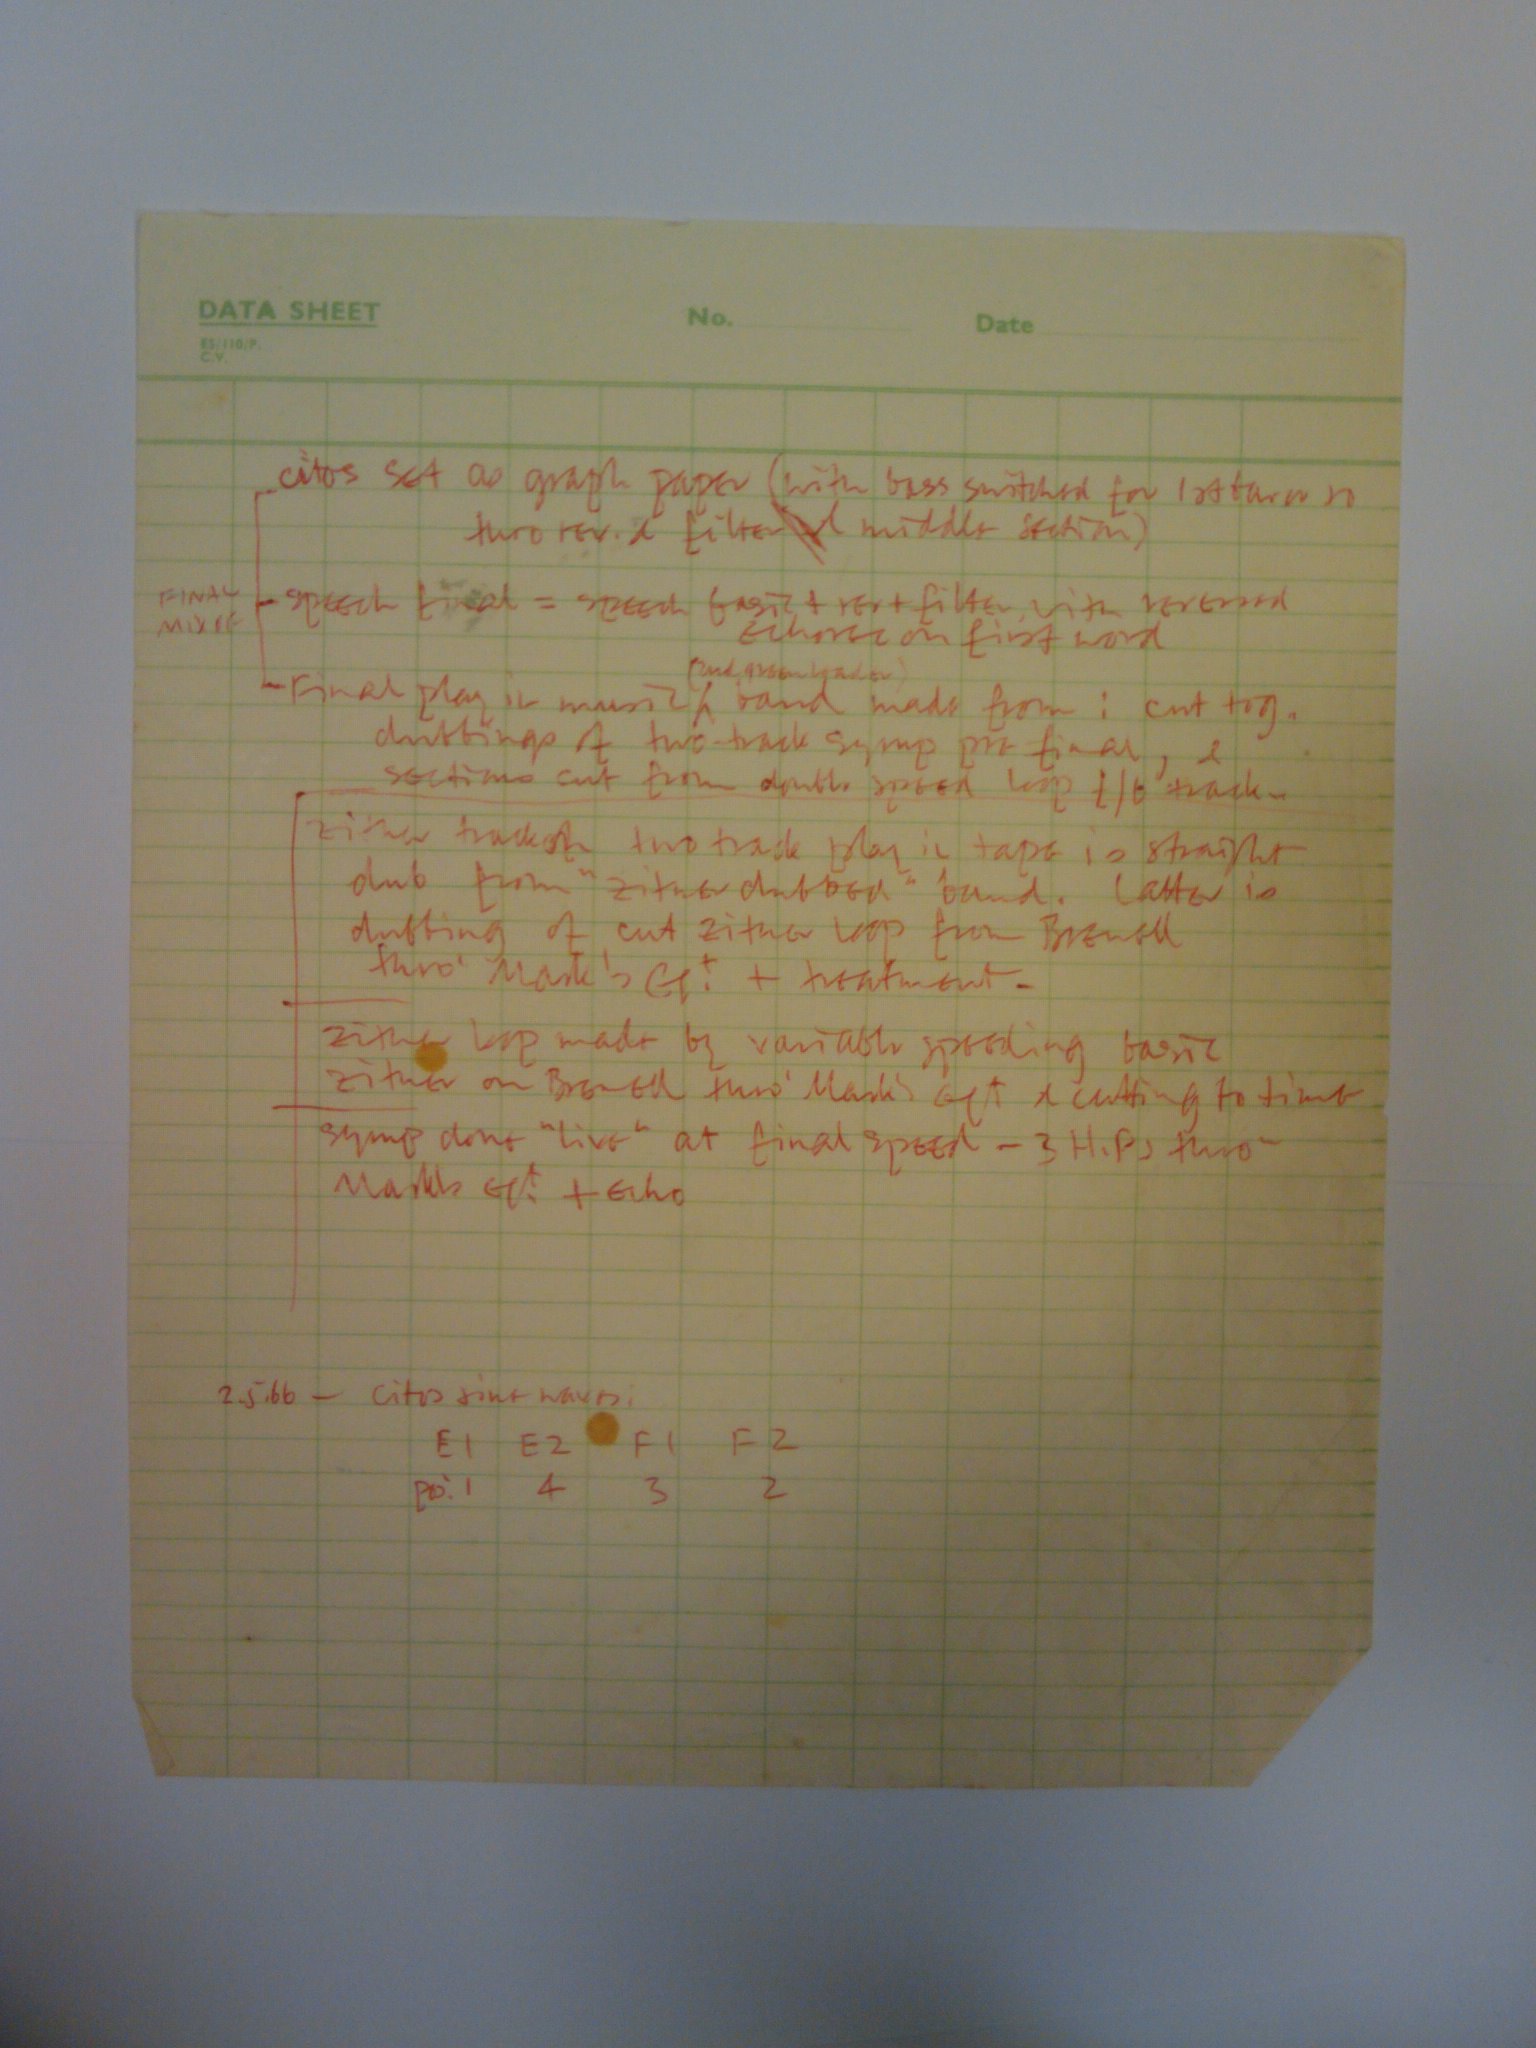 DATA SHEET No. Date
ES/110/P.
C.V.
citos set as graph paper (with bass switched for 1st
thro rev. & filter middle section)
FINAL
speech final = speech basic + rev + filter, with reversed
echoes on first word
(2nd green leader)
Final play in music band made from: cut tog.
dubbings of two-track symp pre final, &
sections cut from double speed loop f/b track.
Zither track of two track play in tape is straight
dub from "zither dubbed" band. Latter is
dubbing of cut zither loop from Brenell
thro' Mark's eqt + treatment.
Zither loop made by variable speeding basic
zither on Brenell thro' Mark's eqt & cutting to time
symp done "live" at final speed - 3 H.Ps thro'
Mark's eqt + echo
2.5.66 - Citos sine waves:
E1 E2 F1 F2
po: 1 4 3 2